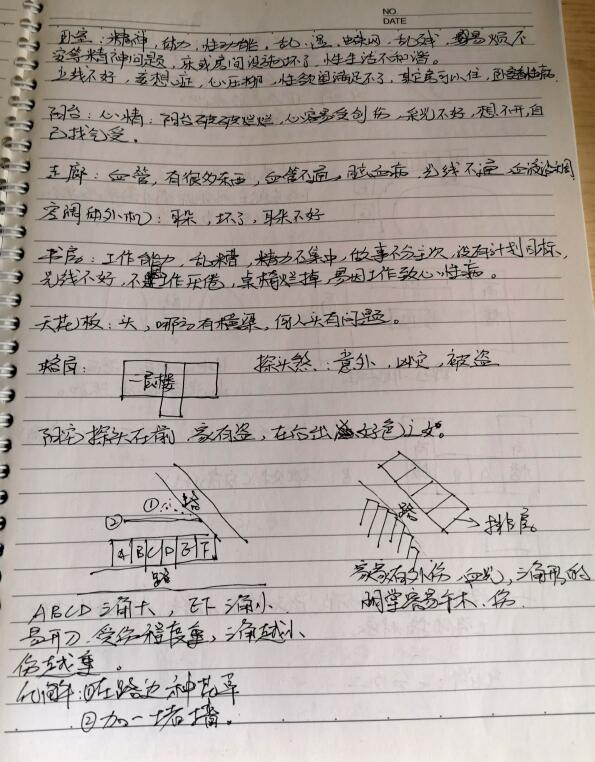 NO.
DATE
卧室：精神，能力，性功能，乱，湿，蜘蛛网，乱线，易烦不
安等精神问题，床或房间设施坏了，性生活不和谐。
光线不好，妄想症，心压抑，性欲望满足不了，其它房可以住，
阳台：心情：阳台破破烂烂，心容易受创伤，采光不好，想不开，自
己找气受。
走廊：血管，有很多东西，血管不通，脑血病，光线不通，血液
空调(室外机)：耳朵，坏了，耳朵不好
书房：工作能力，乱糟，精力不集中，做事不分主次，没有计划目标，
光线不好，工作厌倦，桌椅烂掉，易因工作致心性病。
天花板：头，哪方有横梁，何人头有问题。
格局：
一层楼
探头煞：意外，凶灾，被盗
阳宅探头在前，家有盗，在后出好色之女。
① 路
②
A B C D E F
路
路
排房
ABCD三角大，EF三角小
易开刀，受伤程度重，三角越小
伤越重。
家家有外伤，血光，三角形的
明堂容易手术、伤
化解：①在路边种花草
②加一堵墙。